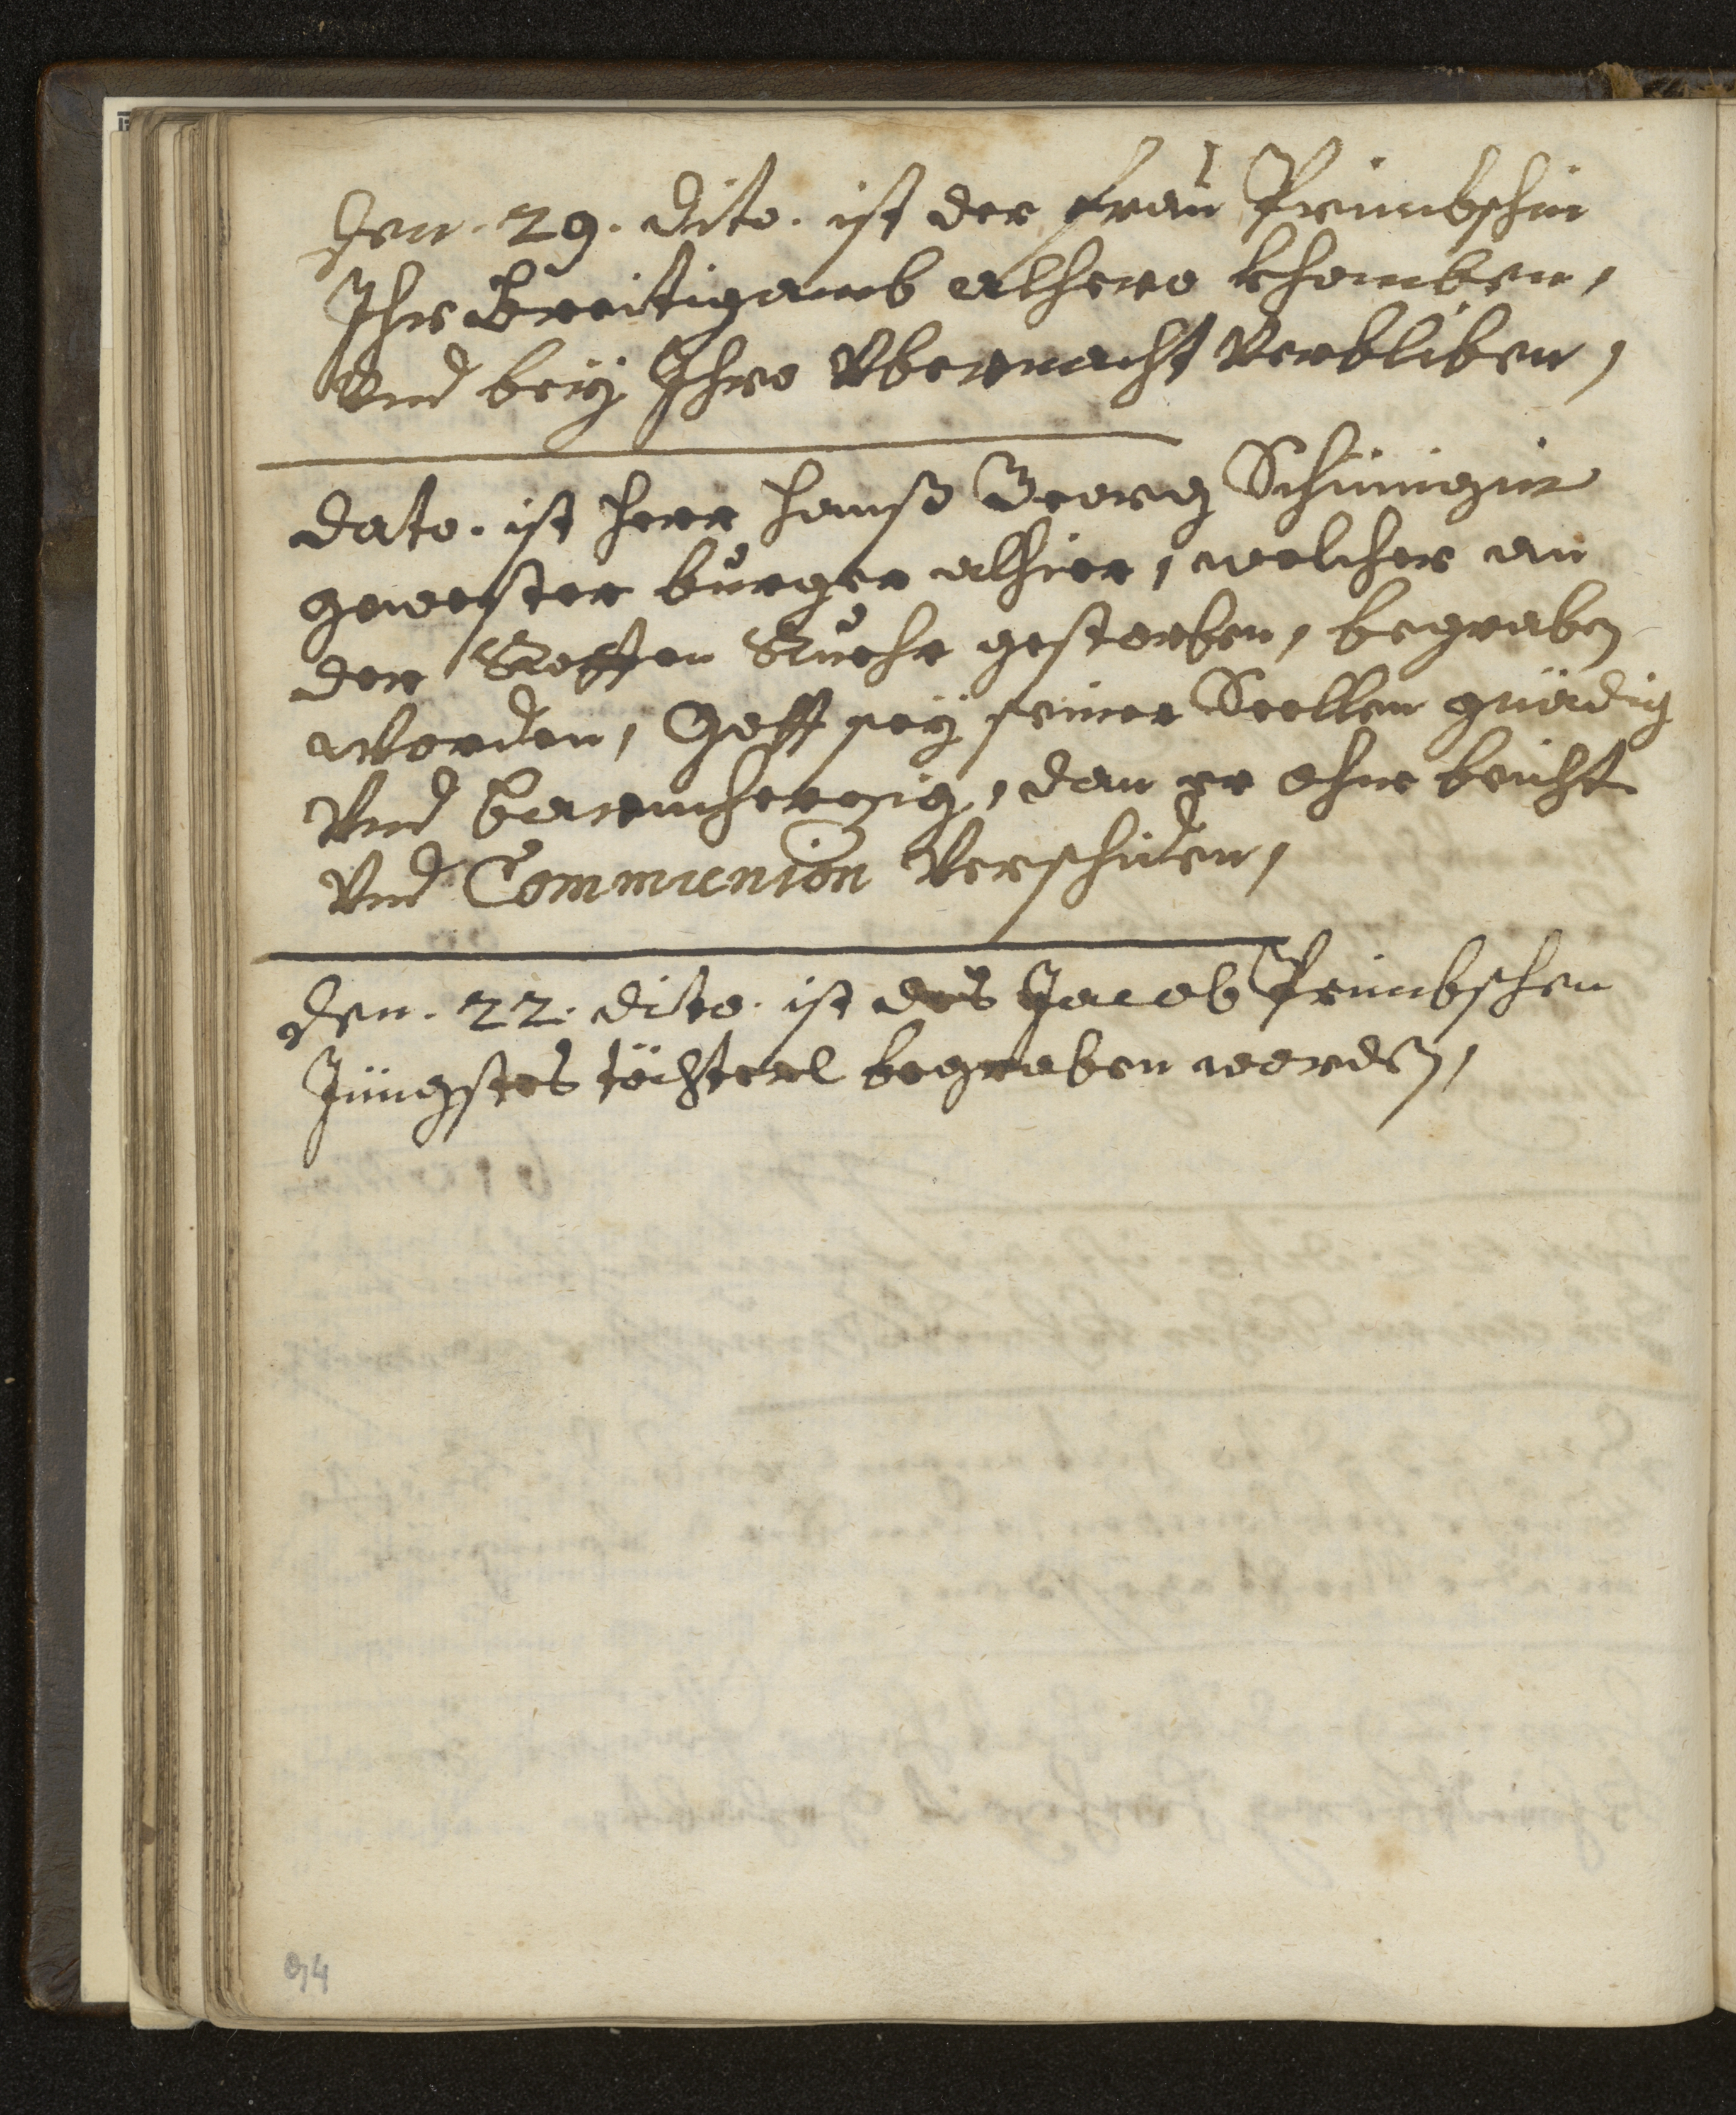 Den. 29. dito. ist der Frau Primbschin
Ihr Breitigamb alhero khomben,
Vnd beÿ Ihro Vbernacht Verbliben,
dato. ist herr Hanß Georg
gewester burger alhier, welcher an
der Rotten Ruehr gestorben, begraben
worden, Gott seÿ seiner Seellen gnädig
Vnd barmherzig, dan er ohne beicht
Vnd Communion Verschiden,
Den. 22. dito. ist des Jacob Primbschen
Jüngstes töchterl begraben worden,
94